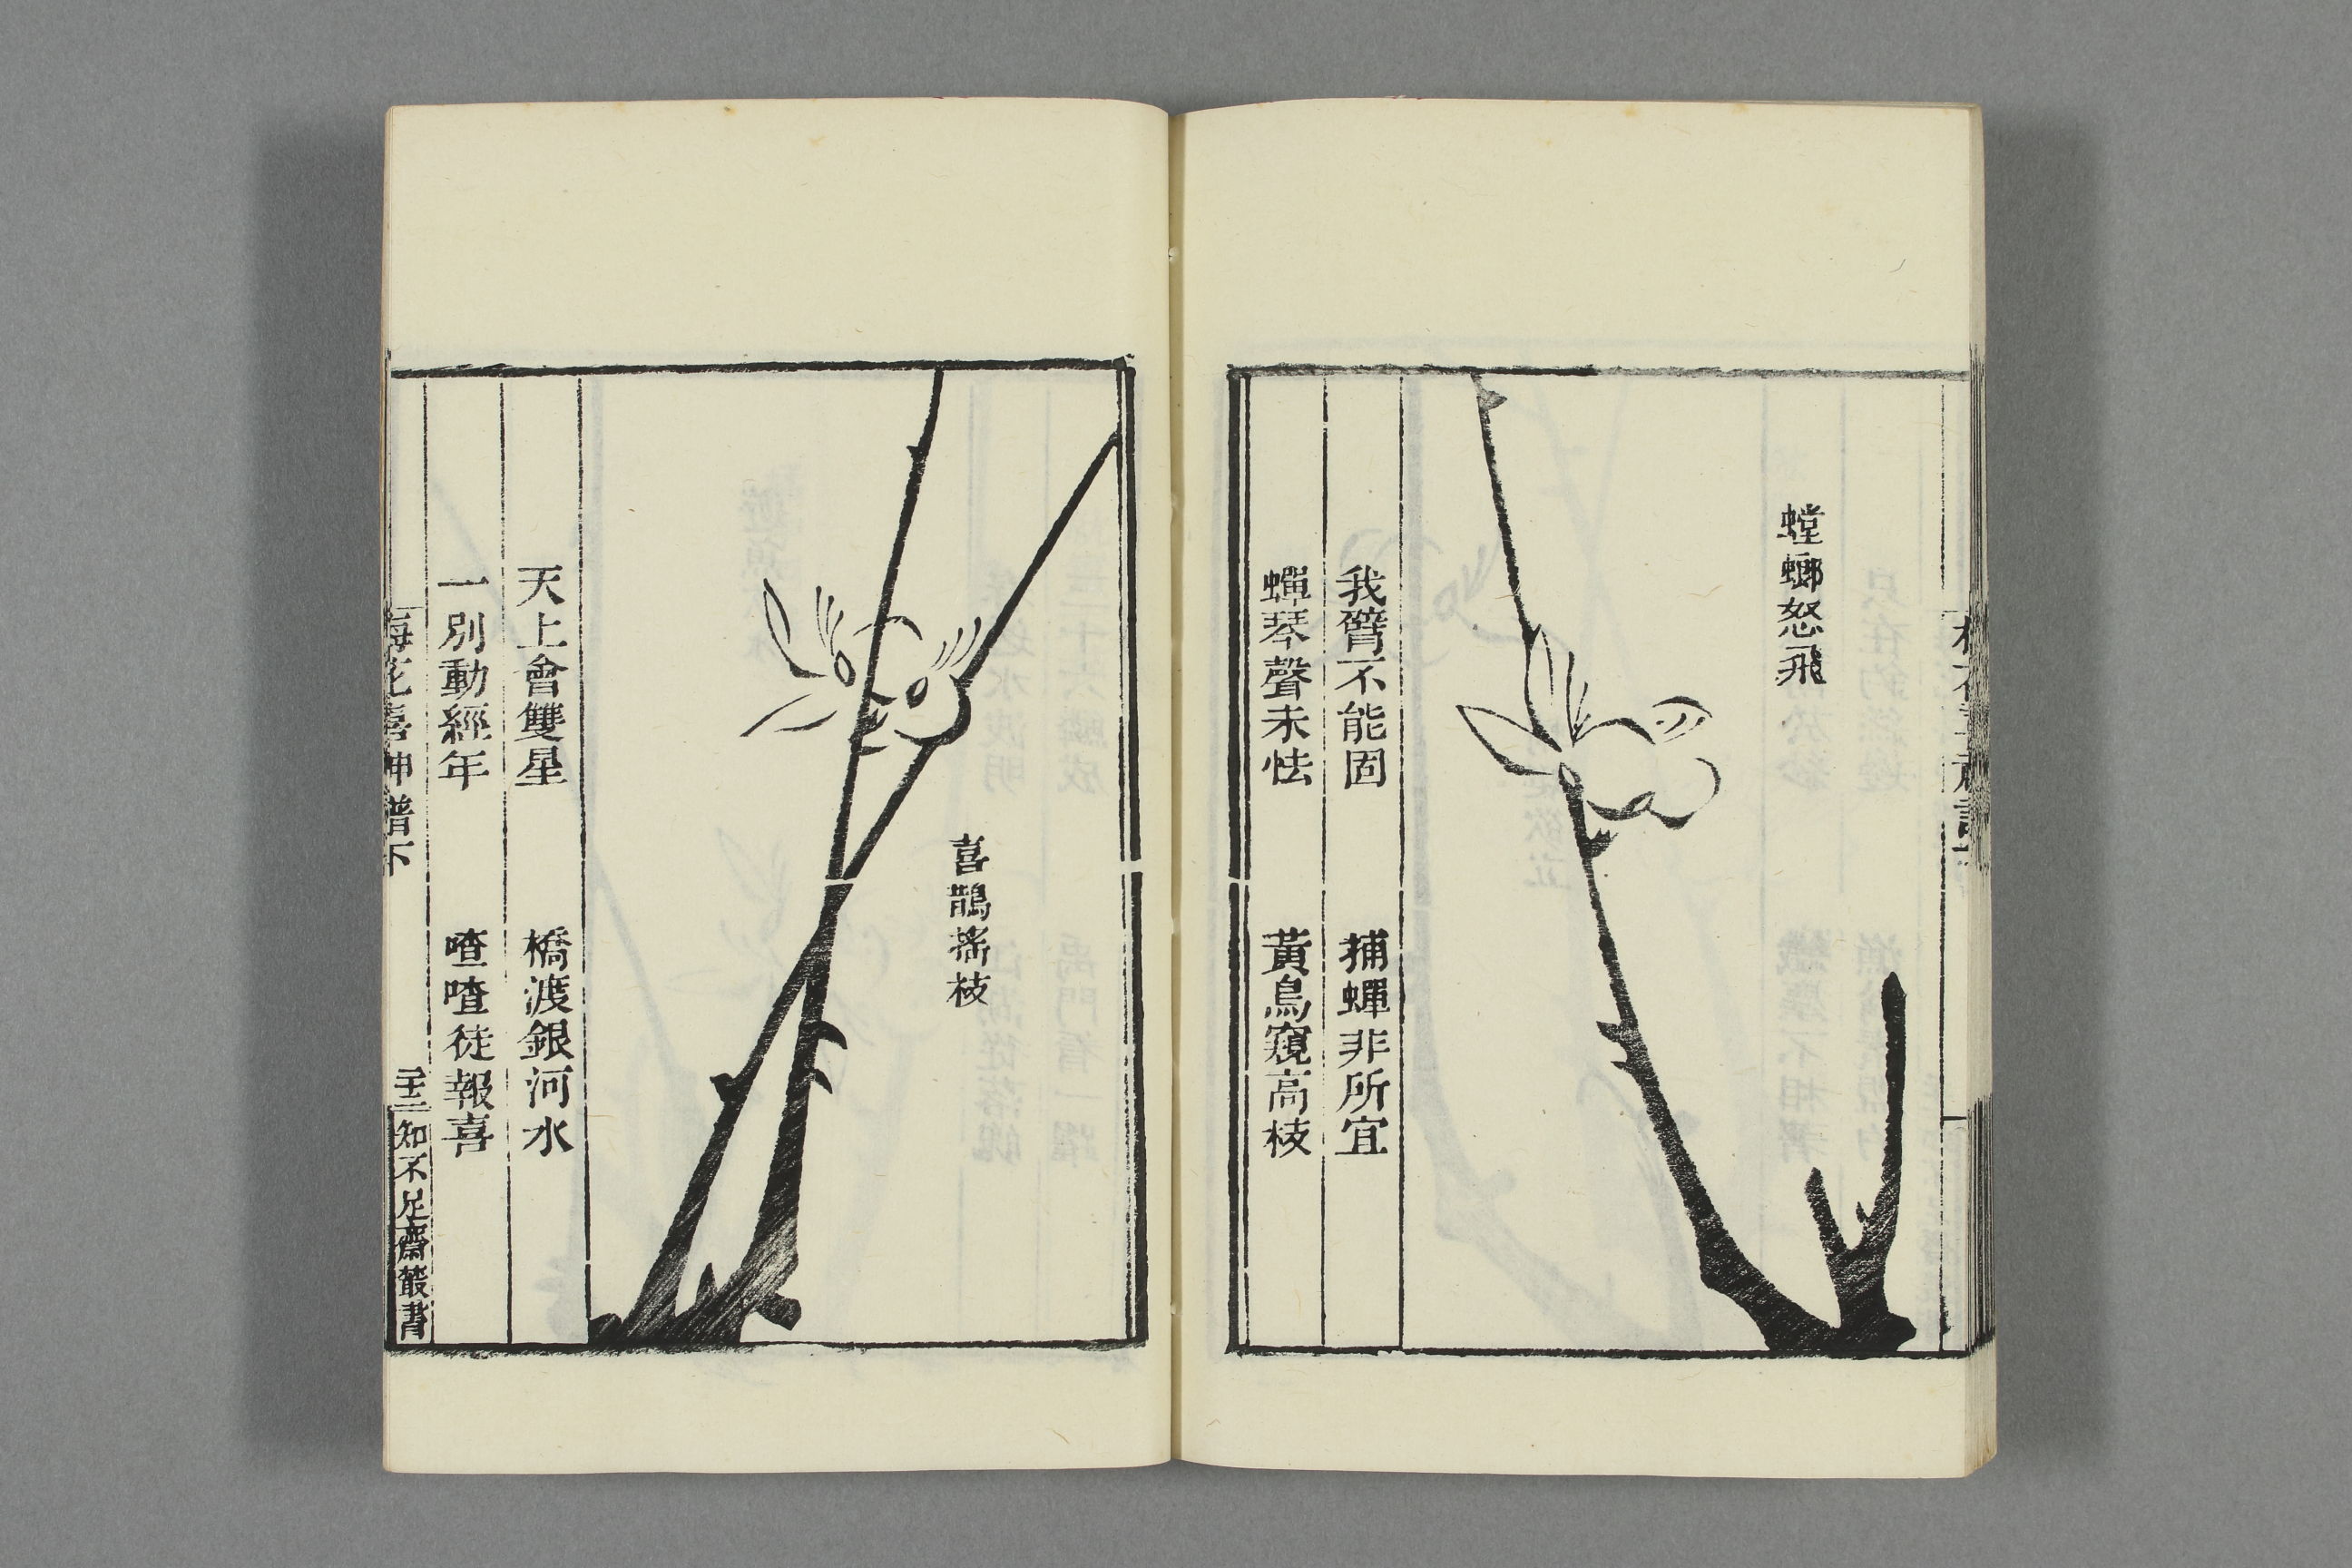 螳螂怒飛
我臂不能固 捕蟬非所宜
蟬琴聲未怯 黃鳥窺高枝
喜鵲搖枝
天上會雙星 橋渡銀河水
一別動經年 喳喳徒報喜
梅花喜神譜下
知不足齋叢書